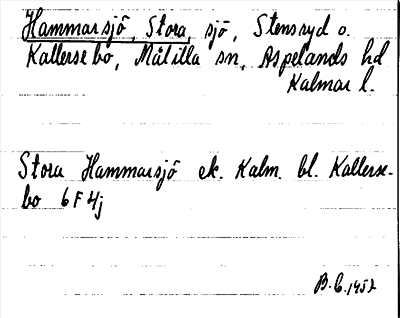 Hammarsjö, Stora, sjö, Stensryd o.
Kallersebo, Målilla sn, Aspelands hd
Kalmar l.
Stora Hammarsjö ek. Kalm. bl. Kallerse-
bo 6 F 4j
B.C. 1952